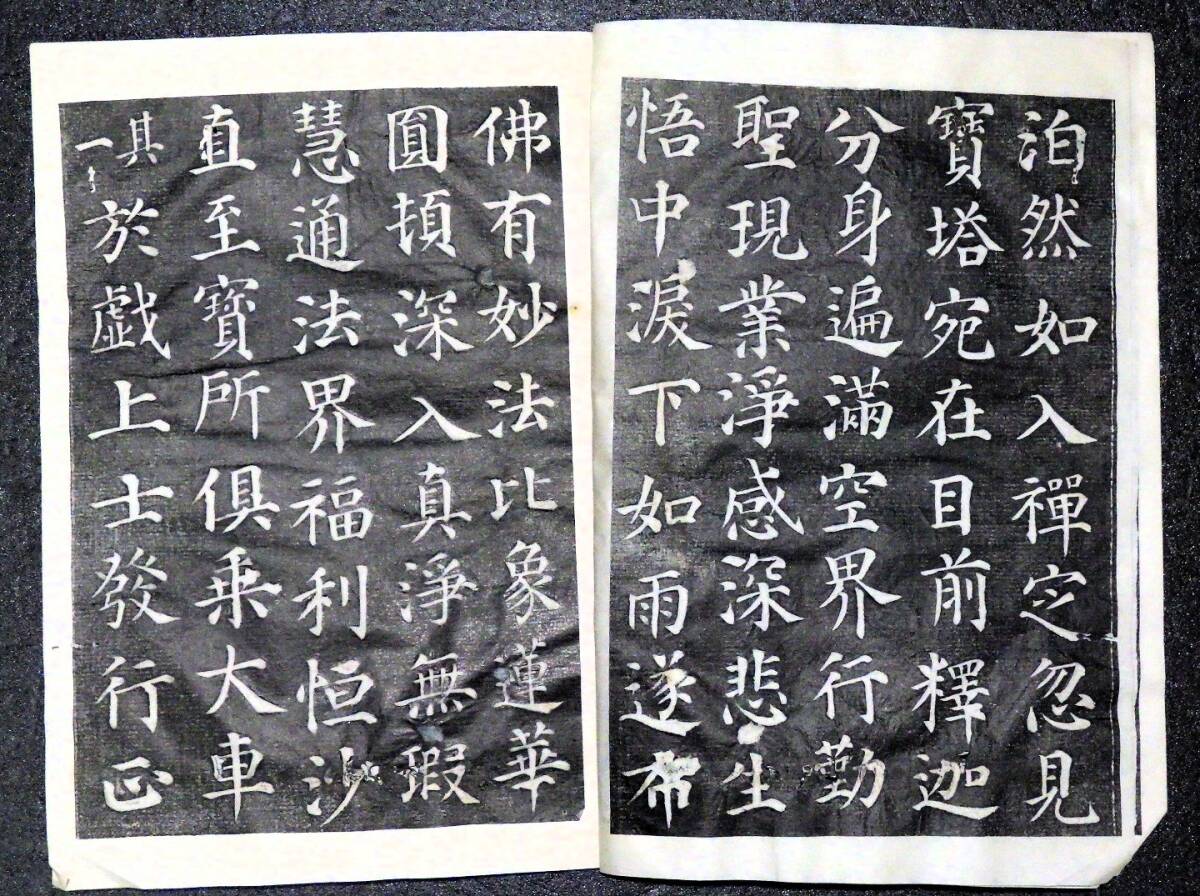 泊然如入禪定忽見
寶塔宛在目前釋迦
分身遍滿空界行勤
聖現業淨感深悲生
悟中淚下如雨遂布
佛有妙法比象蓮華
圓頓深入真淨無瑕
慧通法界福利恒沙
直至寶所俱乘大車
其一
於戲上士發行正